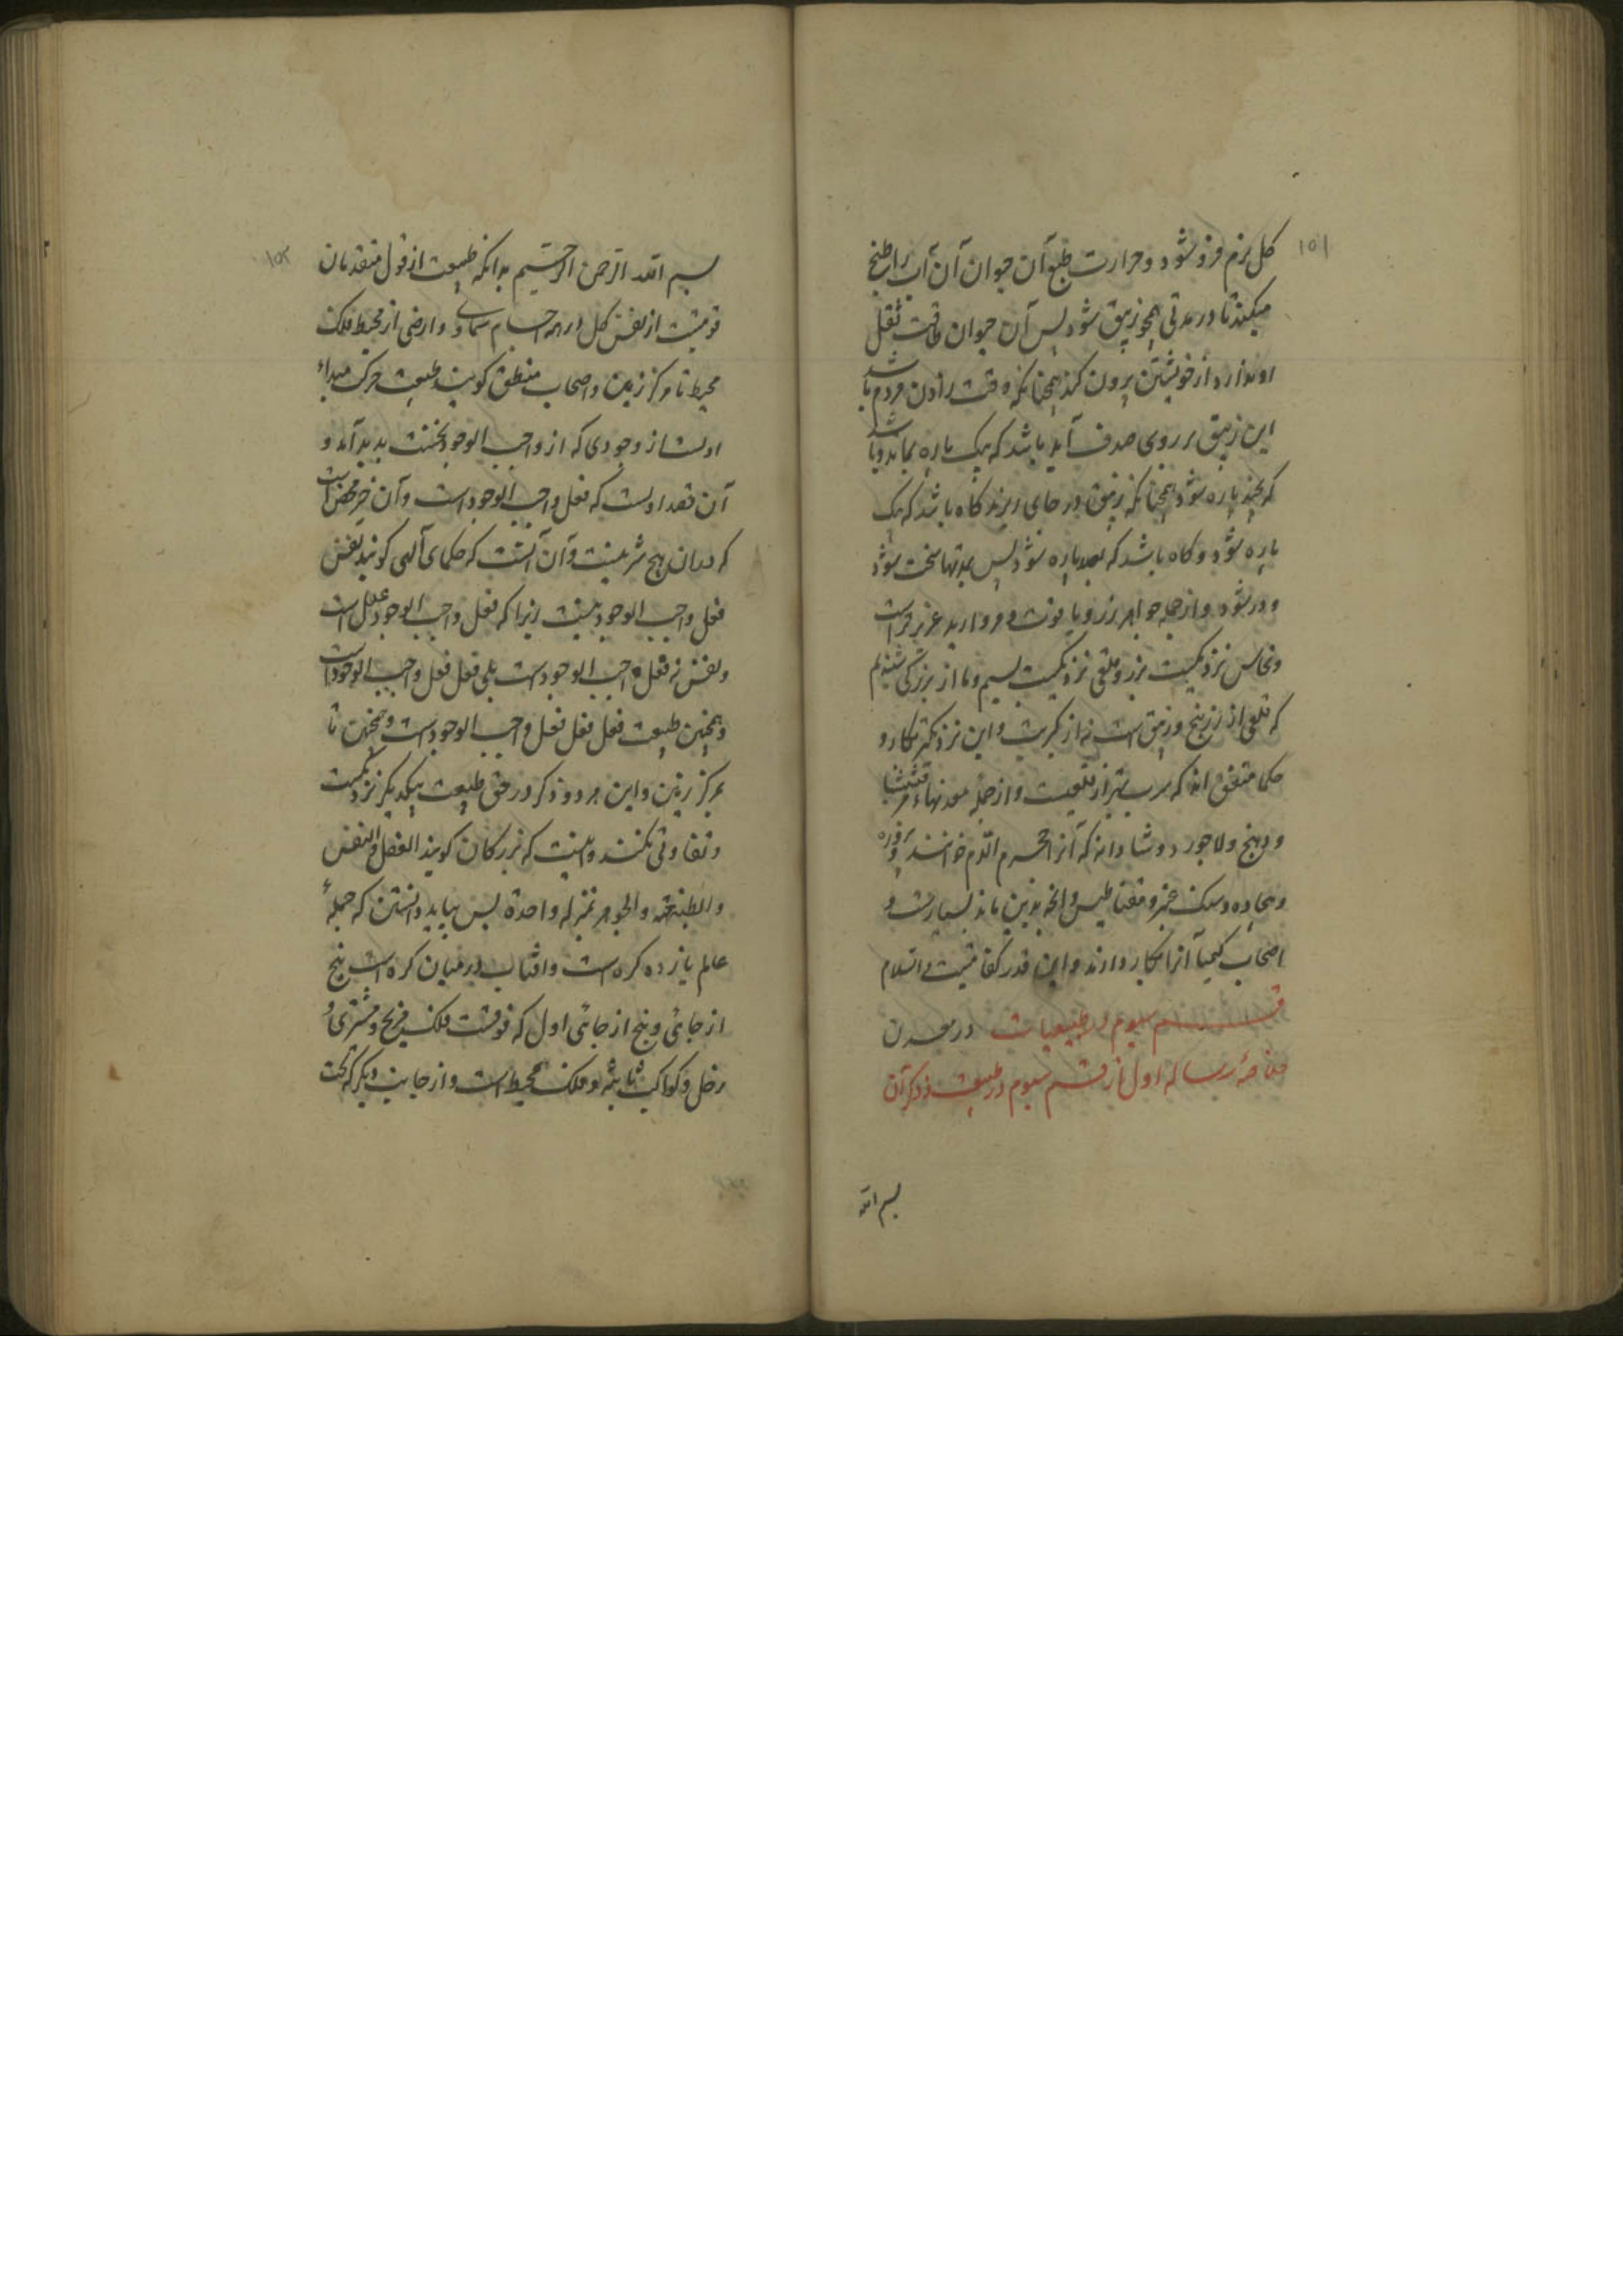 ۱۵۱
کل بزم فرو شود و حرارت طبع آن حیوان آن آب را طبخ
میکند تا در مدتی همچو زیبق شود پس آن حیوان طاقت ثقل
او ندارد از خویشتن برون کند همچنانکه وقت زادن مردم باشد
این زیبق بر روی صدف آید باشد که یک پاره بماند و باشد
که بچند پاره شود همچنانکه زیبق در جای ریزند کاه باشد که یک
پاره شود و کاه باشد که بصد پاره شود پس بمدتها سخت شود
و در شود و از جمله جواهر زر و یاقوت و مروارید عزیزتر است
و نحاس نزدیکست بزر و قلعی نزدیکست بسیم و ما از بزرکی شنیدیم
که قلعی از زرنیخ و زیبق است نه از کبریت و این نزدیکتر بکار و
حکما متفق اند که سرب بتر از قلعیست و از جمله معدنهاء مرقشیشا
و دهنج و لاجورد و شادانه که آنرا حجر الدم خوانند و فیروزه
و بیجاده و سنک خبز و مقناطیس و انچه بدین ماند بسیارست و
اصحاب کیمیا آنرا بکار دارند و این قدر کفایتست والسلام
قسم سیوم در طبیعیات در معدن
رساله اول از قسم سیوم در طبیعت و ذکر آن
بسم الله
۱۵۲
بسم الله الرحمن الرحیم بدانکه طبیعت از قول متقدمان
قوتیست از نفس کل در همه اجسام سماوی و ارضی از محیط فلک
محیط تا مرکز زمین و اصحاب منطق کویند طبیعت حرکت مبداء
اولست از وجودی که از واجب الوجود نخست پدید آمد و
آن قصد اولست که فعل واجب الوجود است و آن خیر محض است
که در آن هیچ شر نیست و آن آنست که حکمای آلهی کویند نفس
فعل واجب الوجود نیست زیرا که فعل واجب الوجود عقل است
و نفس نه فعل واجب الوجودست بلی فعل فعل واجب الوجودست
و همچنین طبیعت فعل فعل فعل واجب الوجودست و همچنین تا
بمرکز زمین و این هر دو ذکر در حق طبیعت بیکدیکر نزدیکست
و تفاوتی نکنند و اینست که بزرکان کویند العقل و النفس
و الطبیعة و الجوهر بمنزله واحدة پس بباید دانستن که جملهٔ
عالم یازده کره است و افتاب در میان کره است پنج
از جائی و پنج از جائی اول که فوقست فلک مریخ و مشتری و
زحل و کواکب ثابته و فلک محیط است و از جانب دیکر که تحت